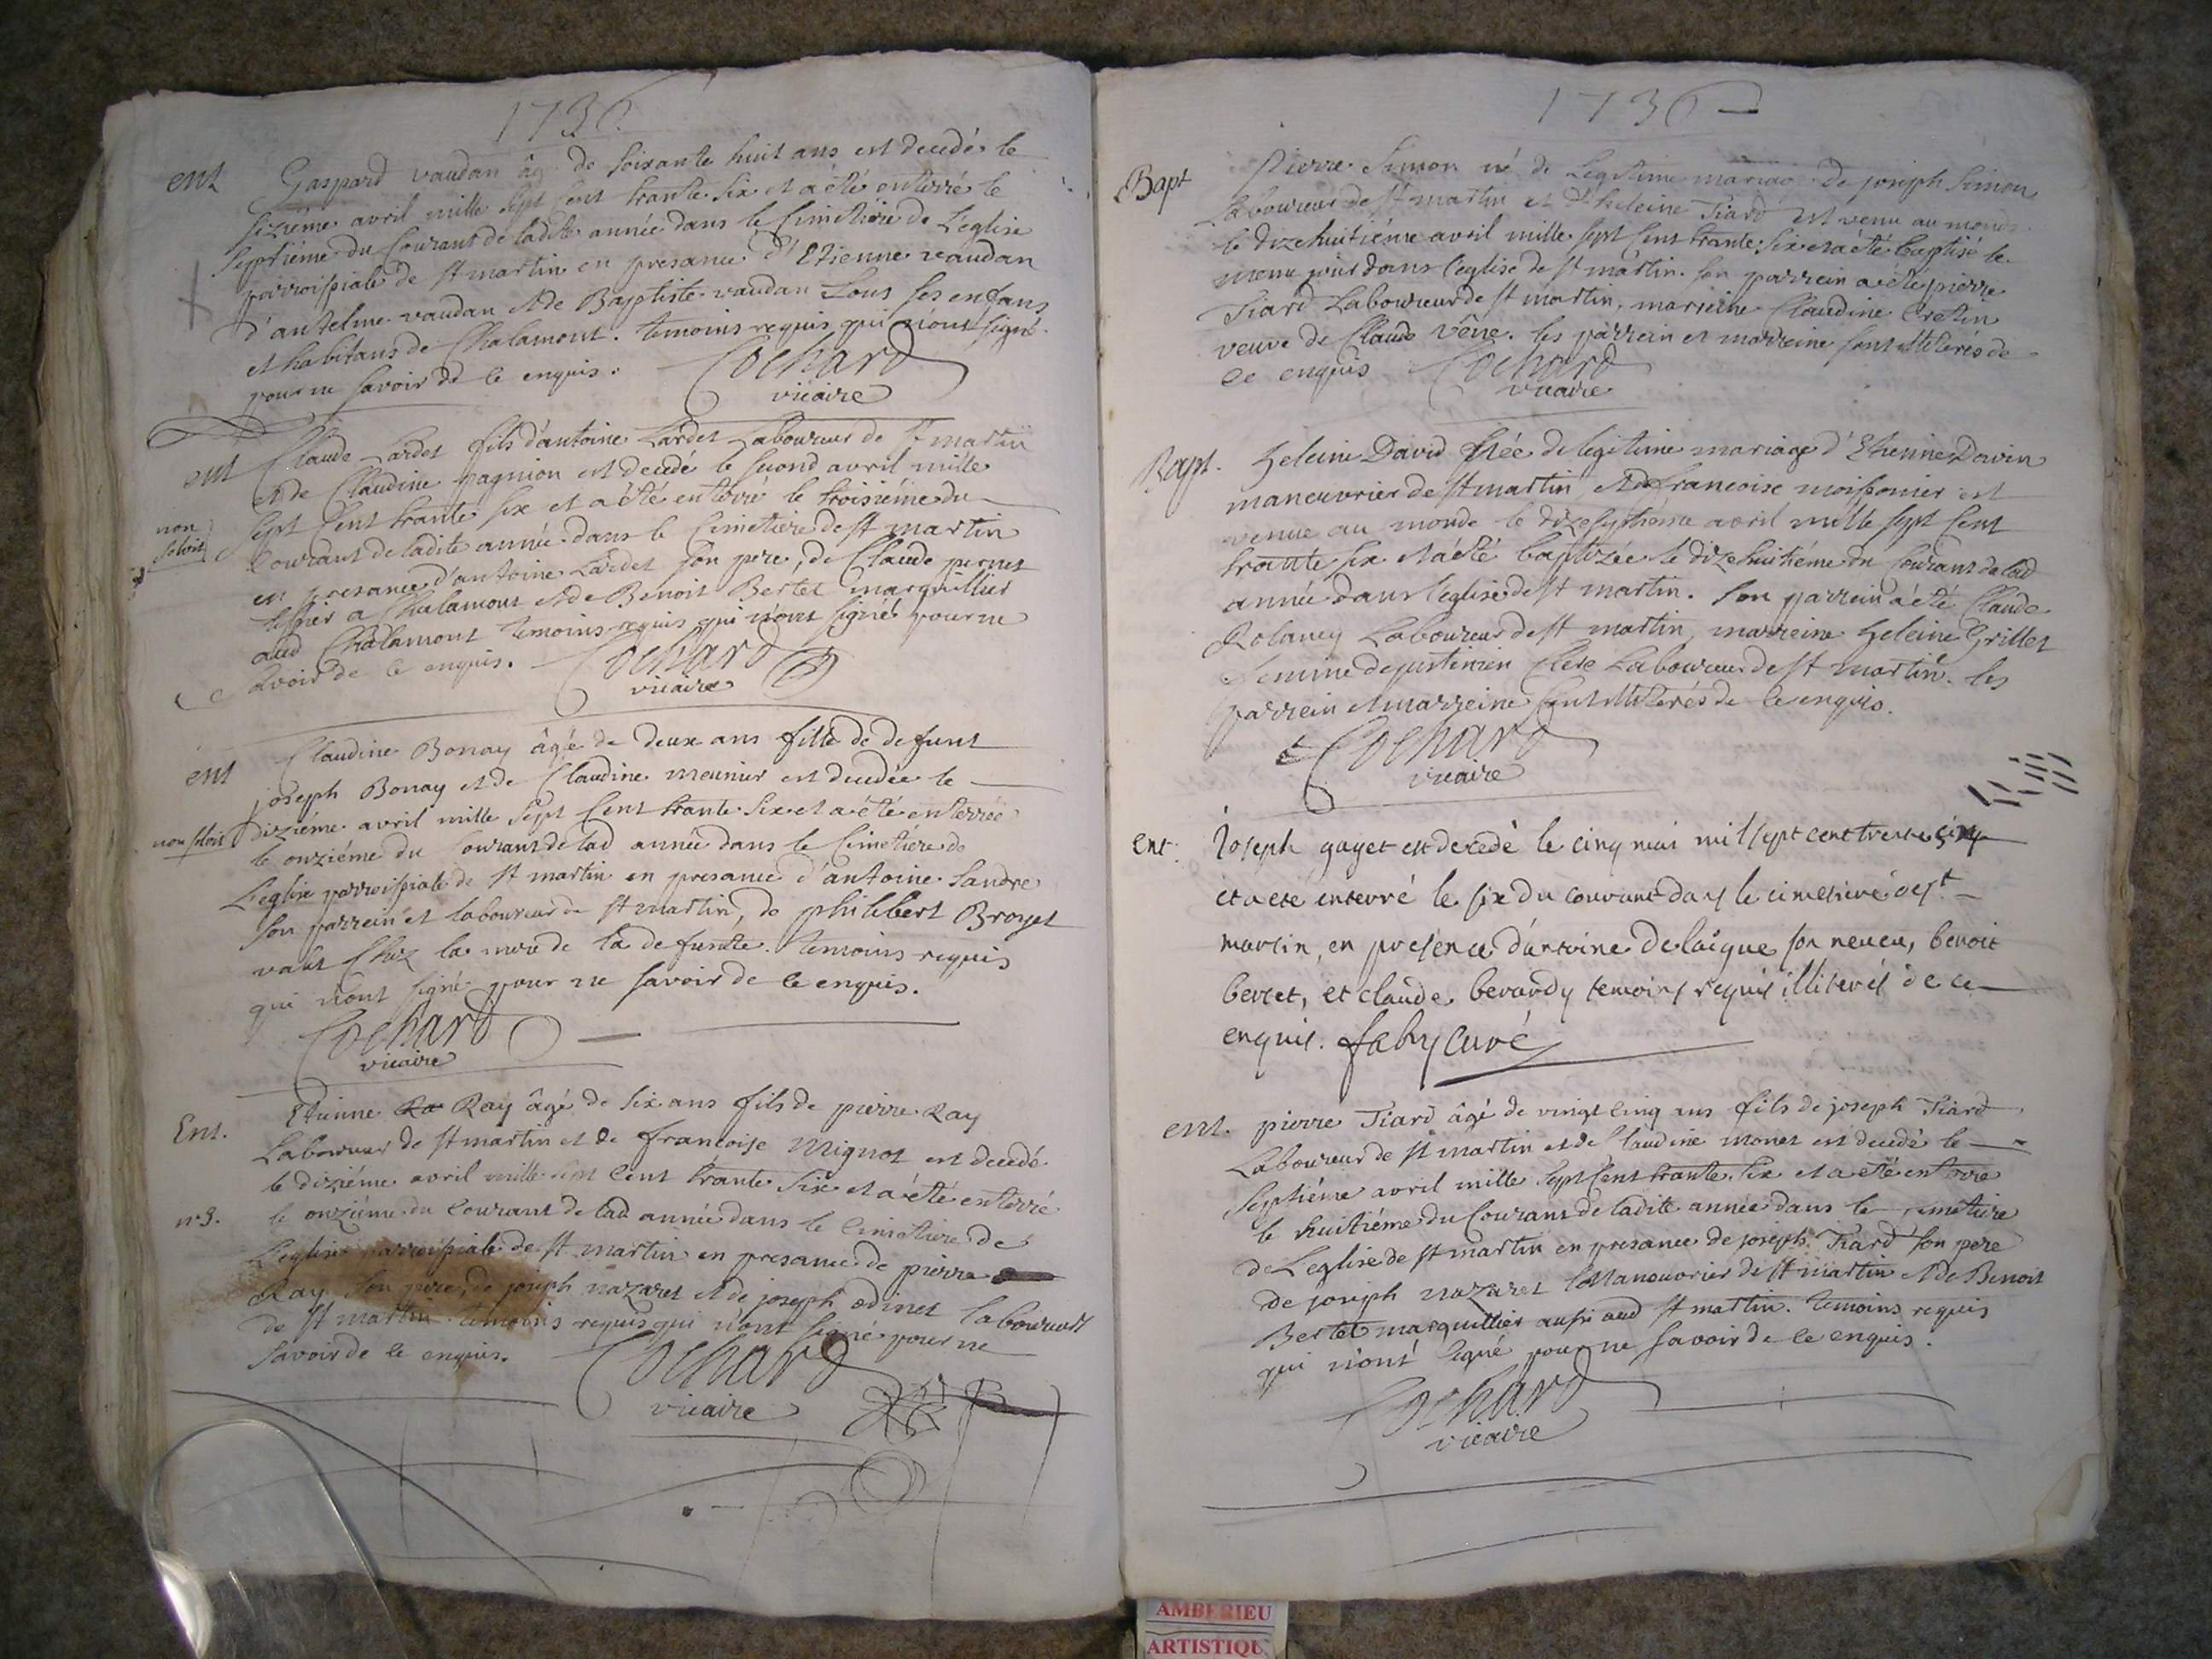 1736
ent Gaspard vaudan âgé de soixante huit ans est decedé le
sixiéme avril mille sept cent trante six et a été enterré le
septiéme du Courant de ladite année dans le Cimetiere de L'eglise
parroissiale de st martin en presance d'Etienne vaudan
d'antelme vaudan et de Baptiste vaudan tous ses enfans
et habitans de Chalamont. temoins requis qui n'ont signé
pour ne savoir de ce enquis. Cochard
vicaire
ent Claude Lardet fils d'antoine Lardet Laboureur de st martin
et de Claudine pagnion est decedé le second avril mille
non
solvit sept Cent trante six et a été enterré le troisiéme du
Courant de ladite année dans le Cimetiere de st martin
en presance d'antoine Lardet son pere, de Claude pernet
tissier a Chalamont et de Benoit Bertet marguillier
aud Chalamont temoins requis qui n'ont signé pour ne
savoir de ce enquis. Cochard
vicaire
ent Claudine Bonay âgé de deux ans fille de defunt
joseph Bonay et de Claudine meunier est decedée le
non solvit diziéme avril mille sept Cent trante six et a été enterrée
le onziéme du Courant de lad année dans le Cimetiére de
L'eglise parroissiale de st martin en presance d'antoine Sandre
son parrein et laboureur de st martin, de philibert Broyet
valet Chez la mere de la defunte. temoins requis
qui n'ont signé pour ne savoir de ce enquis.
Cochard
vicaire
Ent. Etienne Ra Ray âgé de six ans fils de pierre Ray
Laboureur de st martin et de francoise Mignot est decedé
le diziéme avril mille sept Cent trante six et a été enterré
le onziéme du Courant de lad année dans le Cimetiere de
L'eglise parroissiale de st martin en presance de pierre
Ray son pere, de joseph nazaret et de joseph odinet laboureurs
de st martin temoins requis qui n'ont signé pour ne
savoir de ce enquis. Cochard
vicaire
1736
Bapt Pierre Simon né de Legitime mariage de joseph Simon
Laboureur de st martin et d'heleine Tiard est venu au monde
le dizehuitiéme avril mille sept Cent trante six et a été baptisé le
meme jour dans l'eglise de st martin. son parrein a été pierre
Tiard Laboureur de st martin, marreine Claudine Cretin
veuve de Claude Vêne. les parrein et marreine sont illiterés de
ce enquis Cochard
vicaire
Bapt. heleine David née de legitime mariage d'Etienne Davin
maneuvrier de st martin et de francoise moissonier est
venue au monde le dizeseptieme avril mille sept Cent
trante six et a été baptizée le dizehuitiéme du Courant de lad
année dans l'eglise de st martin. son parrein a été Claude
Rolancy Laboureur de st martin, marreine heleine Grillet
femme de justinien Clere Laboureur de st martin. les
parrein et marreine sont illiterés de ce enquis.
Cochard
vicaire
Ent. Joseph gayet est decedé le cinq mai mil sept cent trente cinq
et a eté enterré le six du courant dans le cimetiere de st
martin, en presence d'antoine Delaigue son neveu, benoit
bertet, et claude berardy temoins requis illiterés de ce
enquis. faby curé
ent. pierre Tiard âgé de vingt cinq ans fils de joseph Tiard
Laboureur de st martin et de Claudine monet est decedé le
septiéme avril mille sept Cent trante six et a été enterré
le huitiéme du Courant de ladite année dans le cimetiere
de L'eglise de st martin en presance de joseph Tiard son pere
de joseph nazaret Manouvrier de st martin et de Benoit
Bertet marguillier aussi aud st martin. temoins requis
qui n'ont signé pour ne savoir de ce enquis.
Cochard
vicaire
AMBERIEU
ARTISTIQU